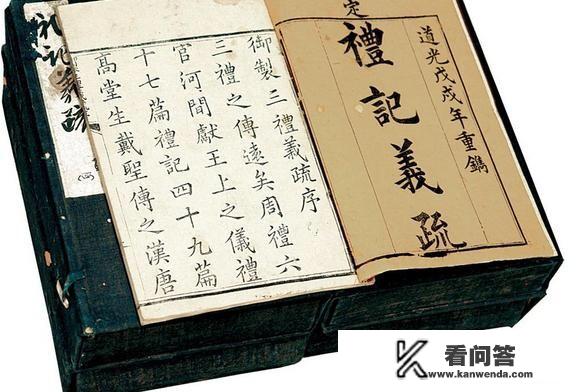 道光戊戌年重鐫
禮記義疏
定
御製三禮義疏序
三禮之傳遠矣周禮六
官河間獻王上之儀禮
十七篇禮記四十九篇
高堂生戴聖傳之漢唐
禮記義疏
看问答
www.kanwenda.com